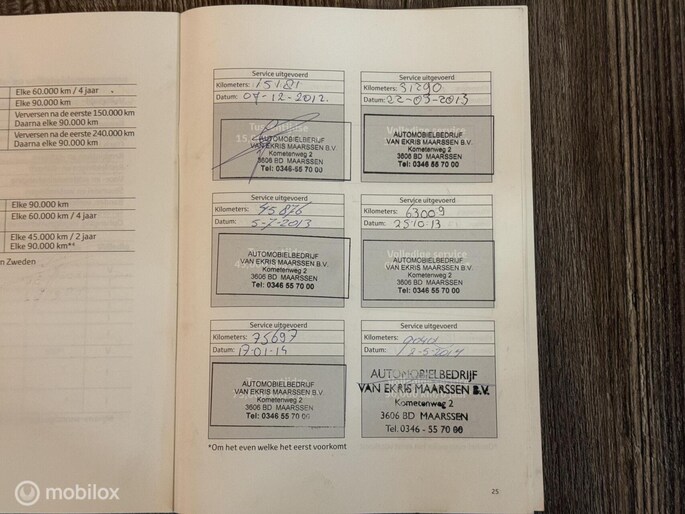 Elke 60.000 km / 4 jaar
Elke 90.000 km
Verversen na de eerste 150.000 km
Daarna elke 90.000 km
Verversen na de eerste 240.000 km
Daarna elke 90.000 km
Elke 90.000 km
Elke 60.000 km / 4 jaar
Elke 45.000 km / 2 jaar
Elke 90.000 km*
n Zweden
Service uitgevoerd
Kilometers: 15181
Datum: 07-12-2012.
AUTOMOBIELBEDRIJF
VAN EKRIS MAARSSEN B.V.
Kometenweg 2
3606 BD MAARSSEN
Tel: 0346-55 70 00
Service uitgevoerd
Kilometers: 31290
Datum: 22-03-2013
Volledige service
AUTOMOBIELBEDRIJF
VAN EKRIS MAARSSEN B.V.
Kometenweg 2
3606 BD MAARSSEN
Tel: 0346 55 70 00
Service uitgevoerd
Kilometers: 45876
Datum: 5-7-2013
AUTOMOBIELBEDRIJF
VAN EKRIS MAARSSEN B.V.
Kometenweg 2
3606 BD MAARSSEN
Tel: 0346 55 70 00
Service uitgevoerd
Kilometers: 63009
Datum: 25.10.13
Volledige service
AUTOMOBIELBEDRIJF
VAN EKRIS MAARSSEN B.V.
Kometenweg 2
3606 BD MAARSSEN
Tel: 0346 55 70 00
Service uitgevoerd
Kilometers: 75697
Datum: 17-01-14
AUTOMOBIELBEDRIJF
VAN EKRIS MAARSSEN B.V.
Kometenweg 2
3606 BD MAARSSEN
Tel: 0346 55 70 00
Service uitgevoerd
Kilometers:
Datum: 12-5-2014
AUTOMOBIELBEDRIJF
VAN EKRIS MAARSSEN B.V.
Kometenweg 2
3606 BD MAARSSEN
Tel. 0346 - 55 70 00
*Om het even welke het eerst voorkomt
25
mobilox